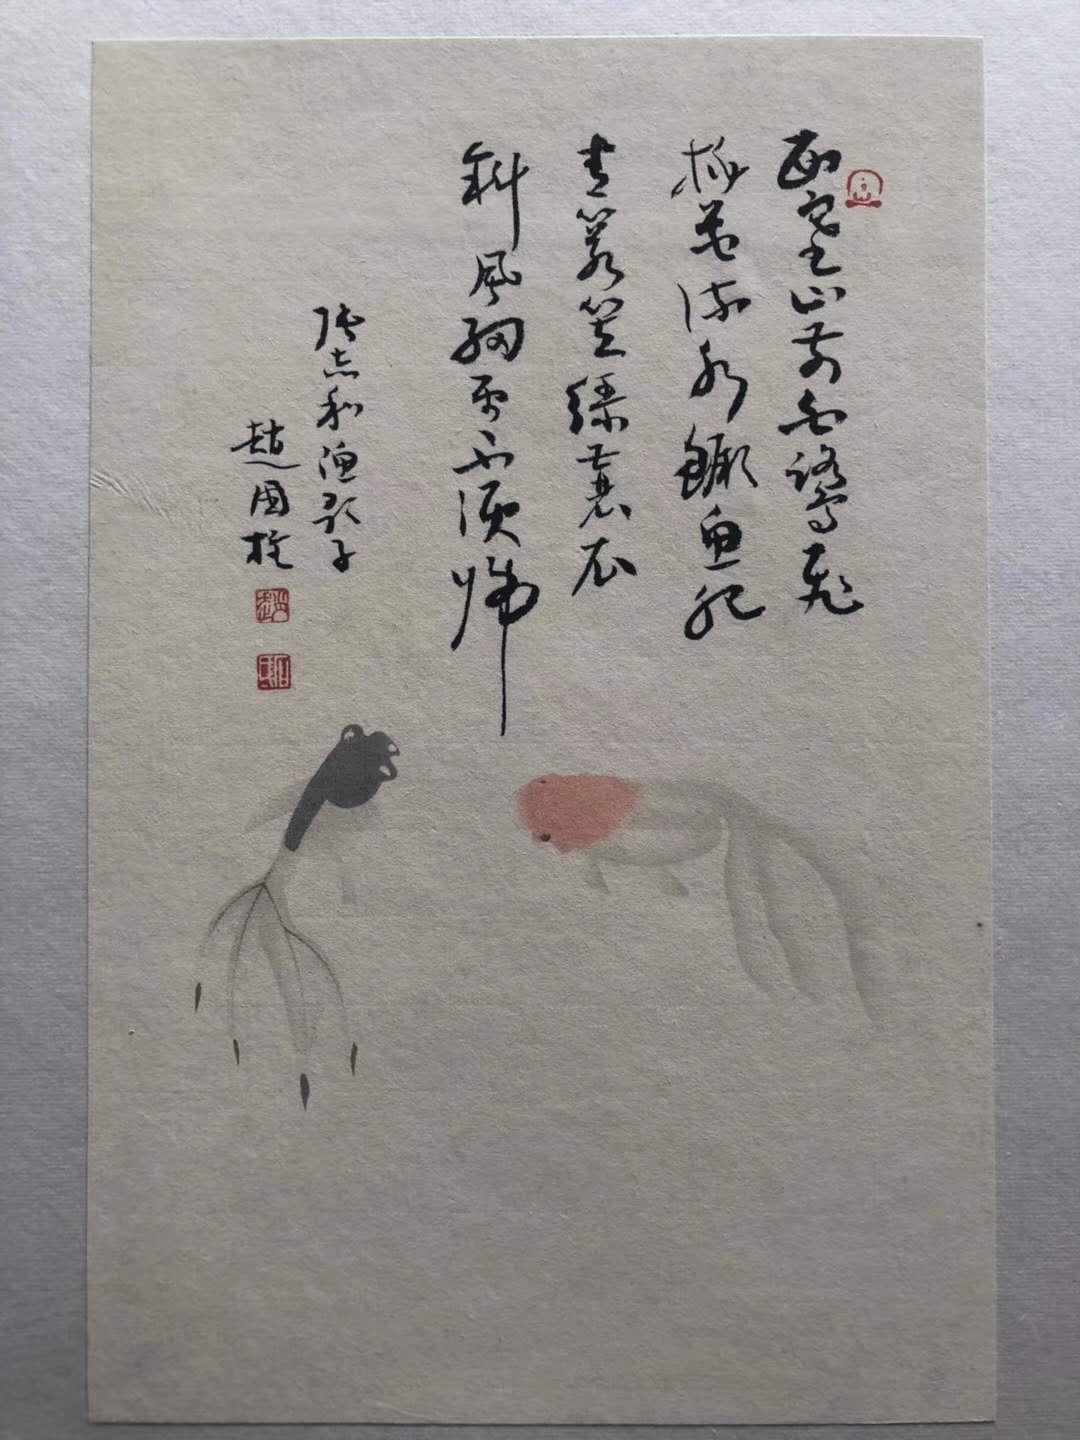 西塞山前白鹭飞
桃花流水鳜鱼肥
青箬笠绿蓑衣
斜风细雨不须归
张志和渔歌子
赵国柱